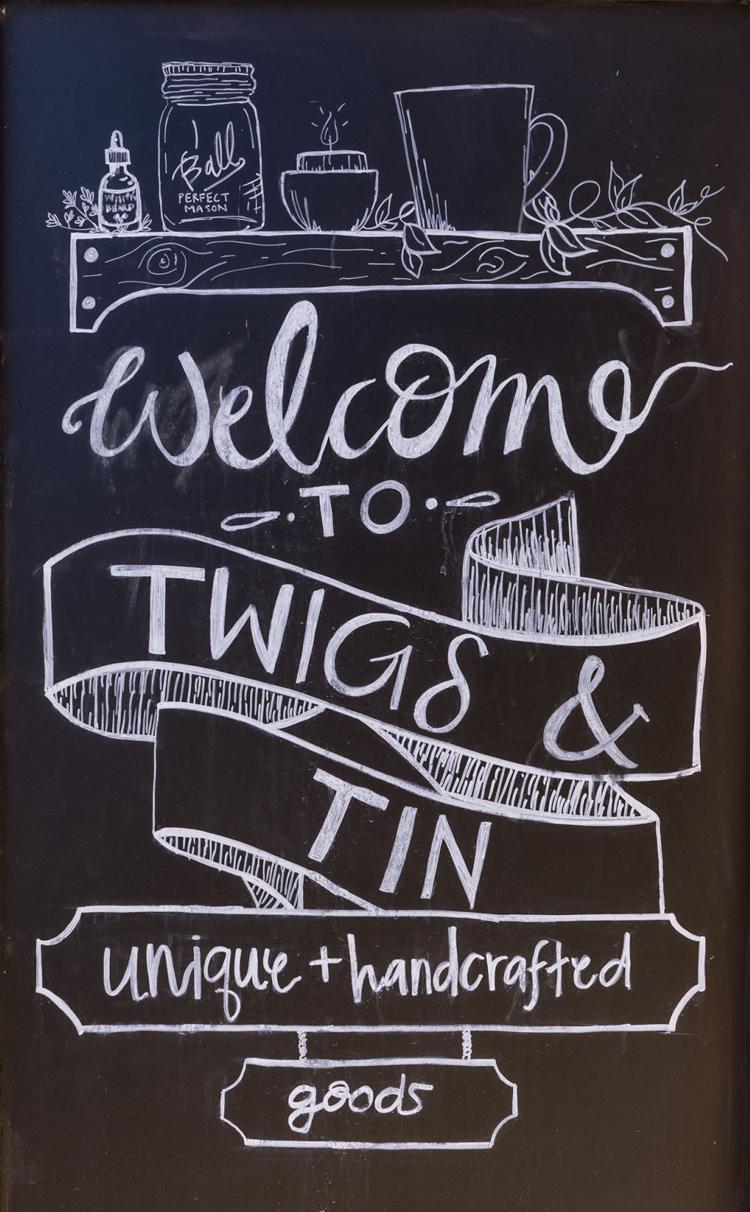 WHITE
BEARD
Ball
PERFECT
MASON
Welcome
TO
TWIGS &
TIN
unique + handcrafted
goods